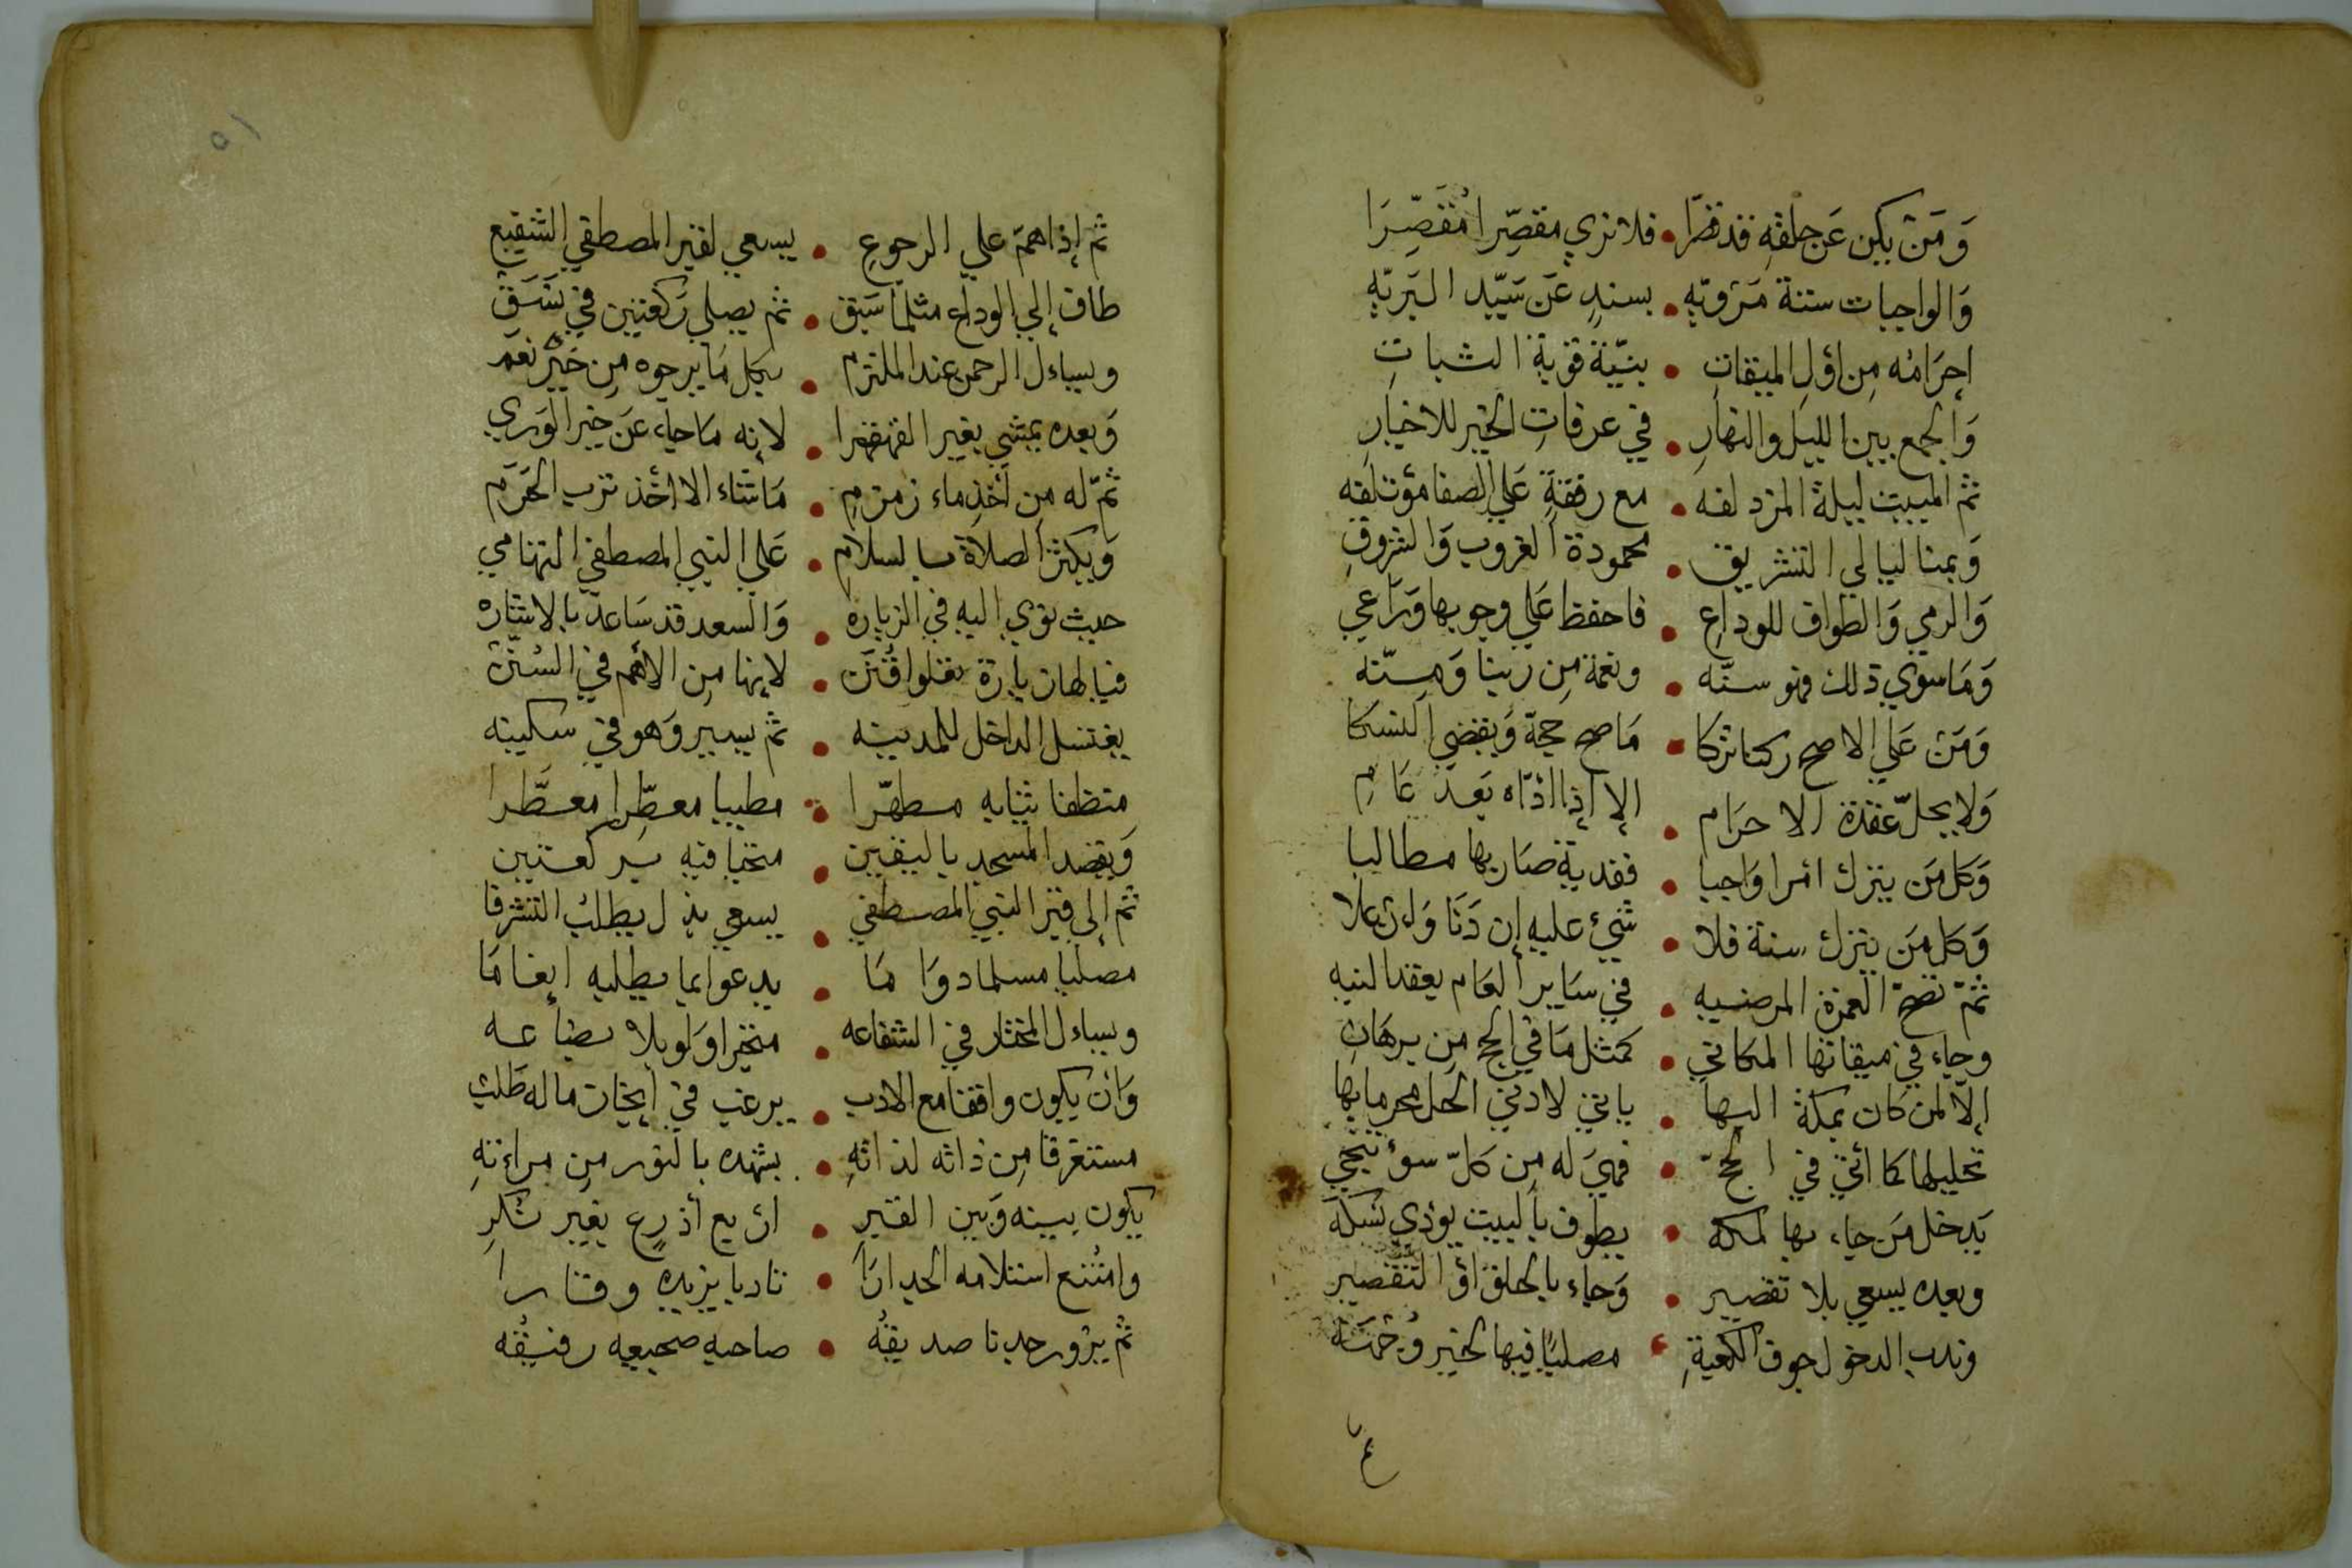 وَمَن يكن عَن حلقهِ قد قصّرا • فلا نري مقصِّرا مُقَصِّرَا
وَالواجبات ستة مَرْويّه • بسندٍ عَن سَيّد البَريّهِ
إحرَامُه مِن اوّلِ الميقاتِ • بنيّة قوية الثباتِ
وَالجمع بين الليل والنهارِ • في عرفاتِ الخير للاخيارِ
ثم المبيت ليلة المزدلفه • مع رفقةٍ عَلي الصفا مؤتلفه
وَبمنا ليالي التشريق • محمودة الغروب وَالشروقِ
وَالرمي وَالطواف للوداعِ • فاحفظ عَلي وجوبها وَرَاعي
وَمَا سوي ذلك فهو سنّه • ونعمة مِن ربنا وَمِنّه
وَمَن عَلي الاصح ركنا تركا • مَا صح حجّه وَيقضي النسكا
وَلا يحلّ عقدة الاحرَام • إلا إذا ادّاه بَعد عَامِ
وَكل مَن يترك امرا وَاجبا • ففدية صَار بها مطالبا
وَكل مَن يترك سنة فلا • شيئ عليه إن دَنَا وَان علا
ثمّ تصحّ العمرة المرضيه • في سَاير العَام بعقد النيه
وجاء في ميقاتها المكاني • كمثل مَا في الحج مِن برهَانِ
إلاّ لمن كان بمكة البها • ياتي لادني الحل محرما بها
تحليلها كما اتي في الحجّ • فهيَ له مِن كلّ سوء تنجي
يَدخل مَن جاء بها لمكه • يطوف بالبيت يؤدي نسكه
وبعده يسعي بلا تقصير • وَجاء بالحلق اوْ التقصير
وندب الدخول جوف الكعبةِ • مصليًا فيها لخير وُجهَة
ع
٥١
ثم إذا همّ علي الرجوعِ • يسعي لقبر المصطفي الشفيع
طاف إلي الوداع مثلما سَبَق • ثم يصلي رَكعتين في نسَق
ويساءل الرحمن عند الملتزم • بكل مَا يرجوه مِن خَيْر نعَم
وَبعده يمشي بغير القهقرا • لانه مَا جاء عَن خير الوَري
ثمّ له مِن أخذ ماء زمزمِ • مَا شاء الا أخذ ترب الحَرَم
وَيكثر الصلاة بالسلامِ • عَلي النبي المصطفي التهامي
حيث نوي اليه في الزياره • وَالسعد قد سَاعد بالاشاره
فيا لها زيارة تعلو اقْتَرَن • لانها مِن الاهم في السُنَن
يغتسل الداخل للمدينه • ثم يسير وَهو في سكينه
منظفا ثيابه مطهّرا • مطيبا معطِّرا معطَّرا
وَيقصد المسجد باليقين • محييا فيه بركعتين
ثم إلي قبر النبي المصطفي • يسعي بذل يطلبُ التشرفا
مصليا مسلما دوَا مَا • يدعوا بما يطلبه إنعامَا
ويساءل المختار في الشفاعه • منكسرا وَلو بلا بضاعه
وَان يكون واقفا مع الادب • يرغب في انجاز ما له طَلب
مستغرقا مِن ذاته لذاتهِ • يشهده بالنور مِن مراءتهِ
يكون بينه وَبين القبرِ • اربع أذرعٍ بغير نُكرِ
وامْتنع استلامه الجدارَا • تادبا يزيده وقارا
ثمّ يزور جدنا صديقهُ • صاحبه ضجيعه رفيقُه